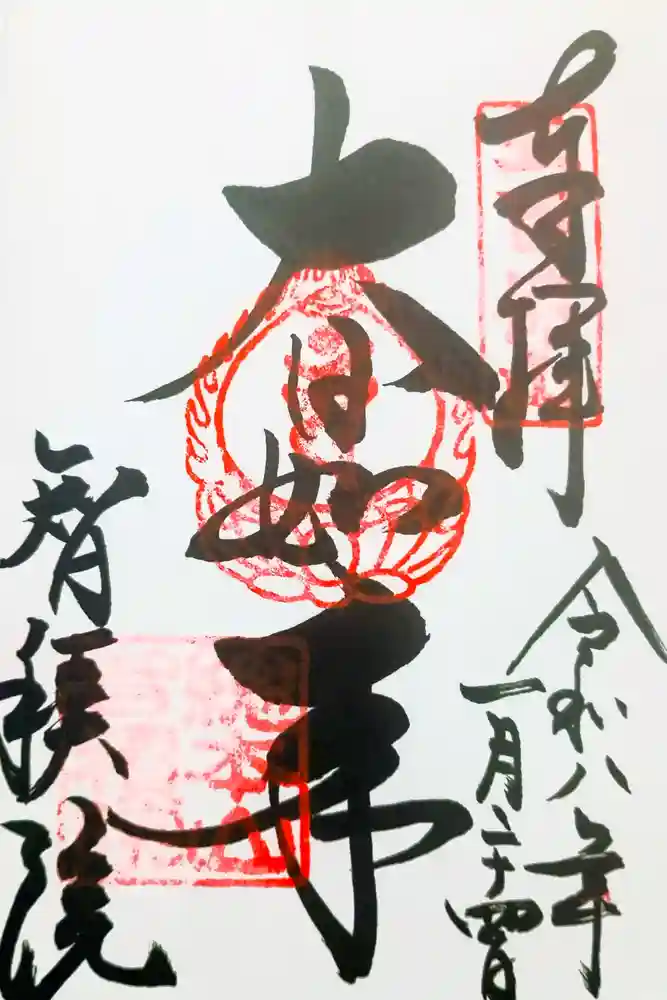 奉拝
令和八年
一月二十四日
大日如来
智積院